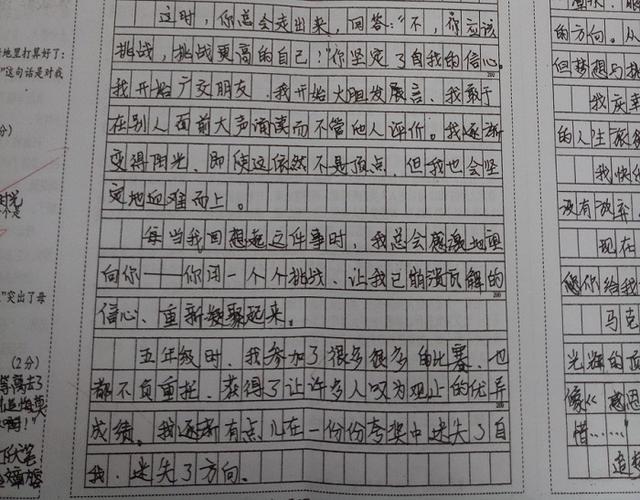 地里打算好了:
"这句话是对我
分)
"突出了母
(2分)
这时,你总会走出来,回答:"不,你应该
挑战,挑战更高的自己!"你坚定了自我的信心。
我开始广交朋友,我开始大胆发展言,我敢于
在别人面前大声诵读而不管他人评价。我逐渐
变得阳光。即使这依然不是顶点,但我也会坚
定地迎难而上。
每当我回想起这件事时,我总会感激地面
向你——你用一个个挑战,让我已崩溃瓦解的
200
信心,重新凝聚起来。
五年级时,我参加了很多很多的比赛,也
都不负重托,获得了让许多人叹为观止的优异
成绩。我逐渐有点儿在一份份夸奖中迷失了自
我,迷失了方向。
的方向。从
但梦想与
我庆幸
的人生旅
我快
没有放弃
现在
您你给我
马克
光辉的
像《感恩
惜……"